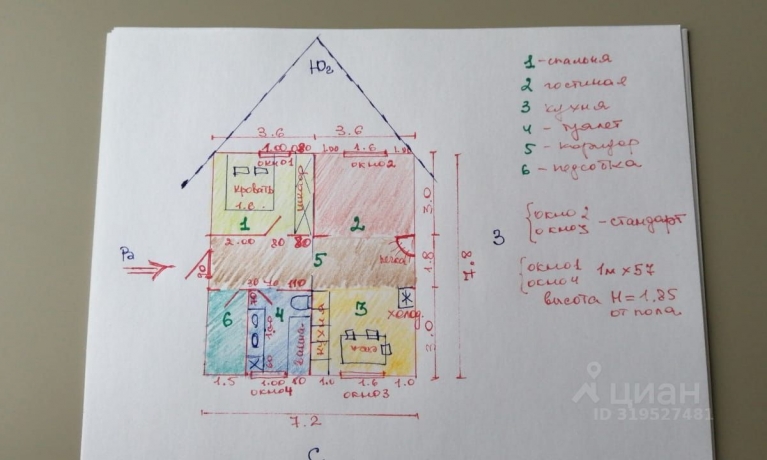 Юг
3.6 3.6
1.00 80 1.00 1.6 1.00
окно1 окно2
кровать
1.6.
шкаф
1 2
2.00 80 80
3.0
Ра
90
5
печка
1.8
7.8
70 70 110
6 4 3
70
1.20
60
кухня
холод.
3.0
1.5 1.00 80 1.0 1.6 1.0
окно4 окно3
7.2
С
З
1 - спальня
2 гостиная
3 кухня
4 - туалет
5 - коридор
6 - подсобка
окно 2
окно3 - стандарт
окно1
окно4 1м x 57
высота H = 1.85
от пола
циан
ID 319527481